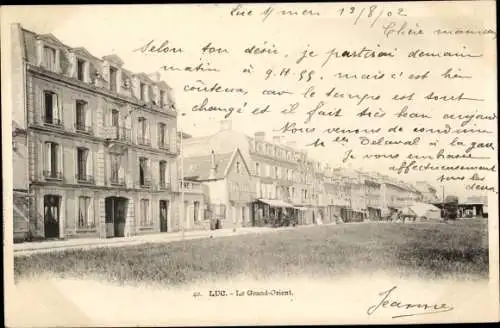 Luc s/ mer 13/8/02
Chère maman
Selon ton désir, je partirai demain
matin à 9.H 55, mais c'est bien
à contre cœur, car le temps est
changé et il fait très beau aujourd'hui
Nous venons de conduire
Mme Delaval à la gare
Je vous embrasse
affectueusement
Jeanne
42. - LUC. - Le Grand-Orient.